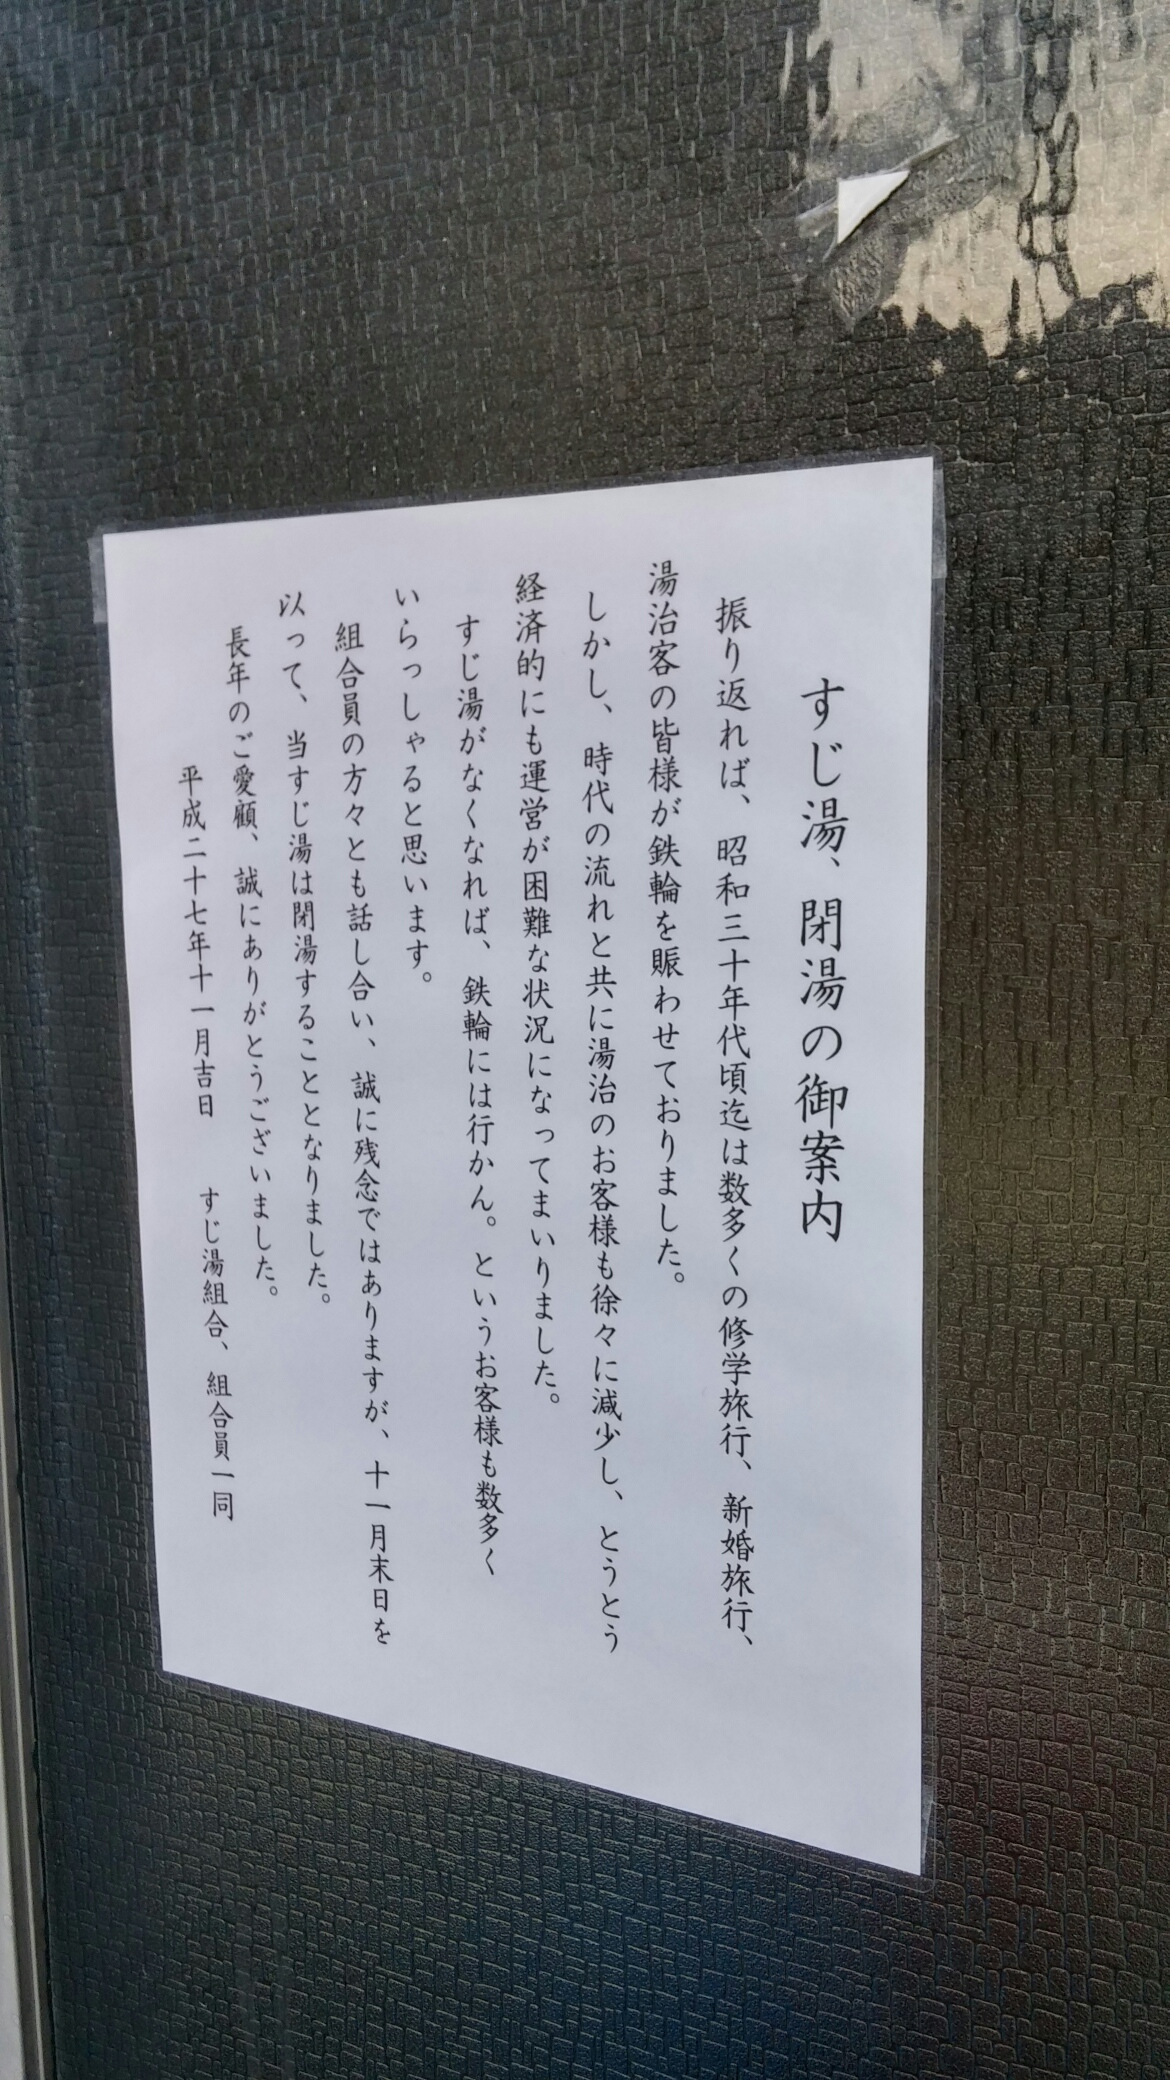 すじ湯、閉湯の御案内
振り返れば、昭和三十年代頃迄は数多くの修学旅行、新婚旅行、
湯治客の皆様が鉄輪を賑わせておりました。
しかし、時代の流れと共に湯治のお客様も徐々に減少し、とうとう
経済的にも運営が困難な状況になってまいりました。
すじ湯がなくなれば、鉄輪には行かん。というお客様も数多く
いらっしゃると思います。
組合員の方々とも話し合い、誠に残念ではありますが、十一月末日を
以って、当すじ湯は閉湯することとなりました。
長年のご愛顧、誠にありがとうございました。
平成二十七年十一月吉日　すじ湯組合、組合員一同